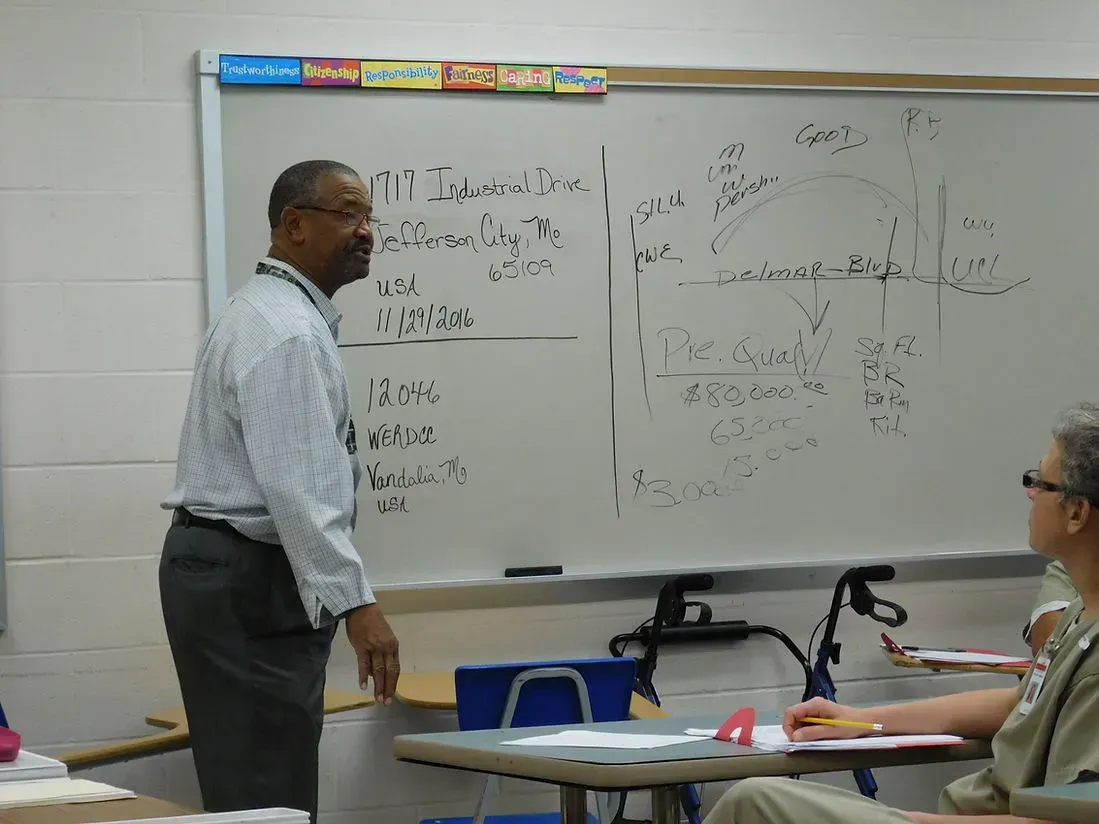 Trustworthiness Citizenship Responsibility Fairness Caring Respect
1717 Industrial Drive
Jefferson City, Mo
65109
USA
11/29/2016
12046
WERDCC
Vandalia, Mo
USA
GOOD
m
Pershi
CWE
DElMAR Blvd
UCL
Pre. Qual
$80,000.00
65,000
15.000
$3.000
Sq. Ft.
BR
Ba Rm
Kit.